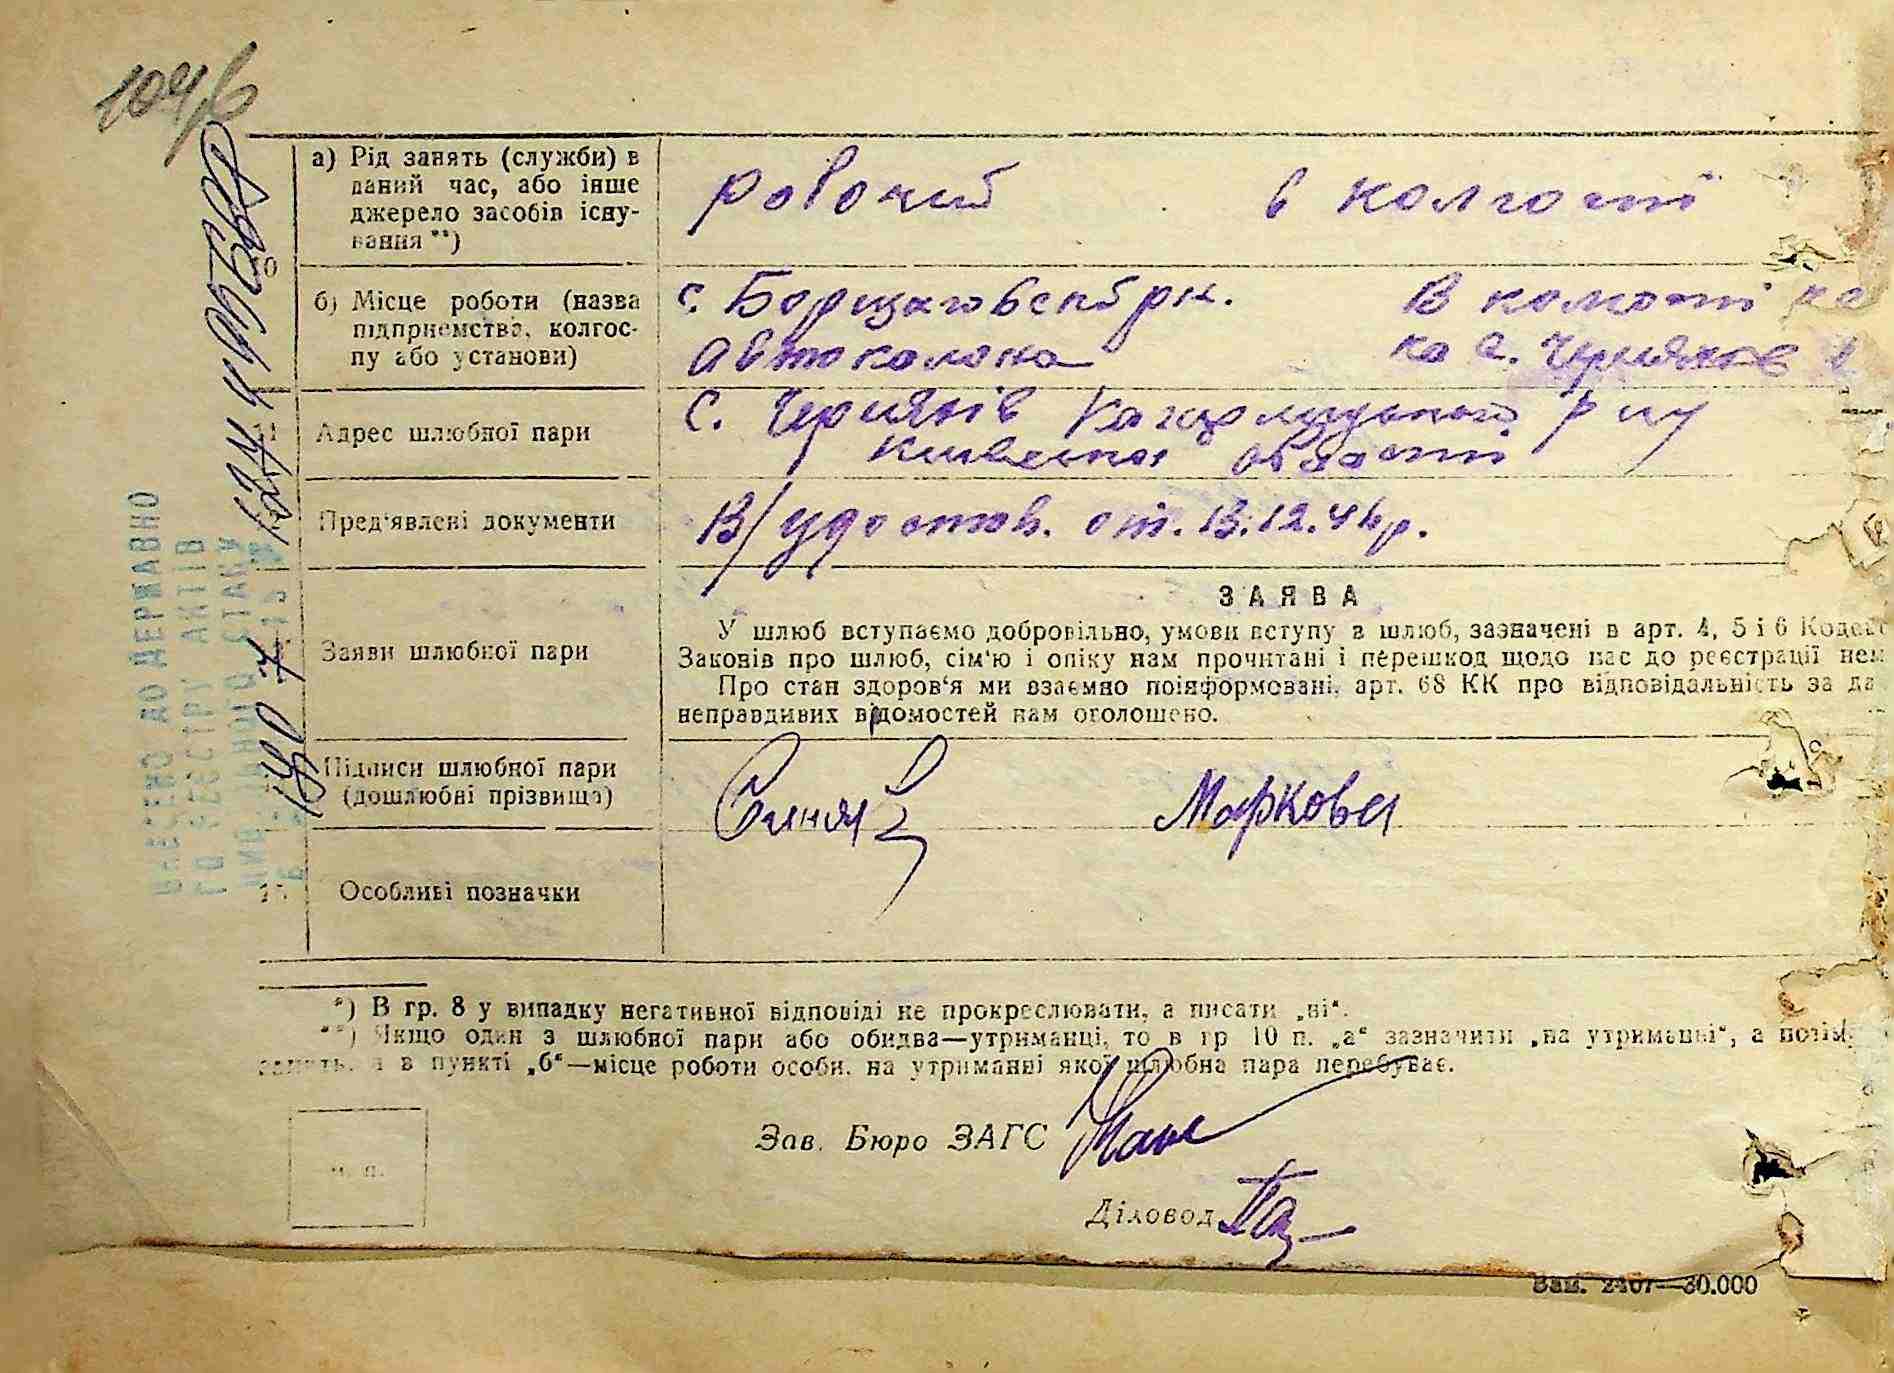 104/6
а) Рід занять (служби) в
даний час, або інше
джерело засобів існу-
вання **)
робочий в колгоспі
10
б) Місце роботи (назва
підприємства, колгос-
пу або установи)
с. Борщагов
автоколона
В колгоспі
с. Черняхів
11 Адрес шлюбної пари
с. Черняхів Кагарлицького р-ну
Київської області
Пред'явлені документи
В/удостов. от. 13.12.44р.
Заяви шлюбної пари
ЗАЯВА
У шлюб вступаємо добровільно, умови вступу в шлюб, зазначені в арт. 4, 5 і 6 Кодек
Законів про шлюб, сім'ю і опіку нам прочитані і перешкод щодо нас до реєстрації нем
Про стан здоров'я ми взаємно поінформовані, арт. 68 КК про відповідальність за да
неправдивих відомостей нам оголошено.
Підписи шлюбної пари
(дошлюбні прізвища)
Маркова
Особливі позначки
*) В гр. 8 у випадку негативної відповіді не прокреслювати, а писати „ні".
**) Якщо один з шлюбної пари або обидва—утриманці, то в гр 10 п. „а" зазначити „на утриманні", а потім
занять, а в пункті „б"—місце роботи особи, на утриманні якої шлюбна пара перебуває.
Зав. Бюро ЗАГС
м. п.
Діловод
Зам. 2407—30.000
ВНЕСЕНО ДО ДЕРЖАВНО
ГО РЕЄСТРУ АКТІВ